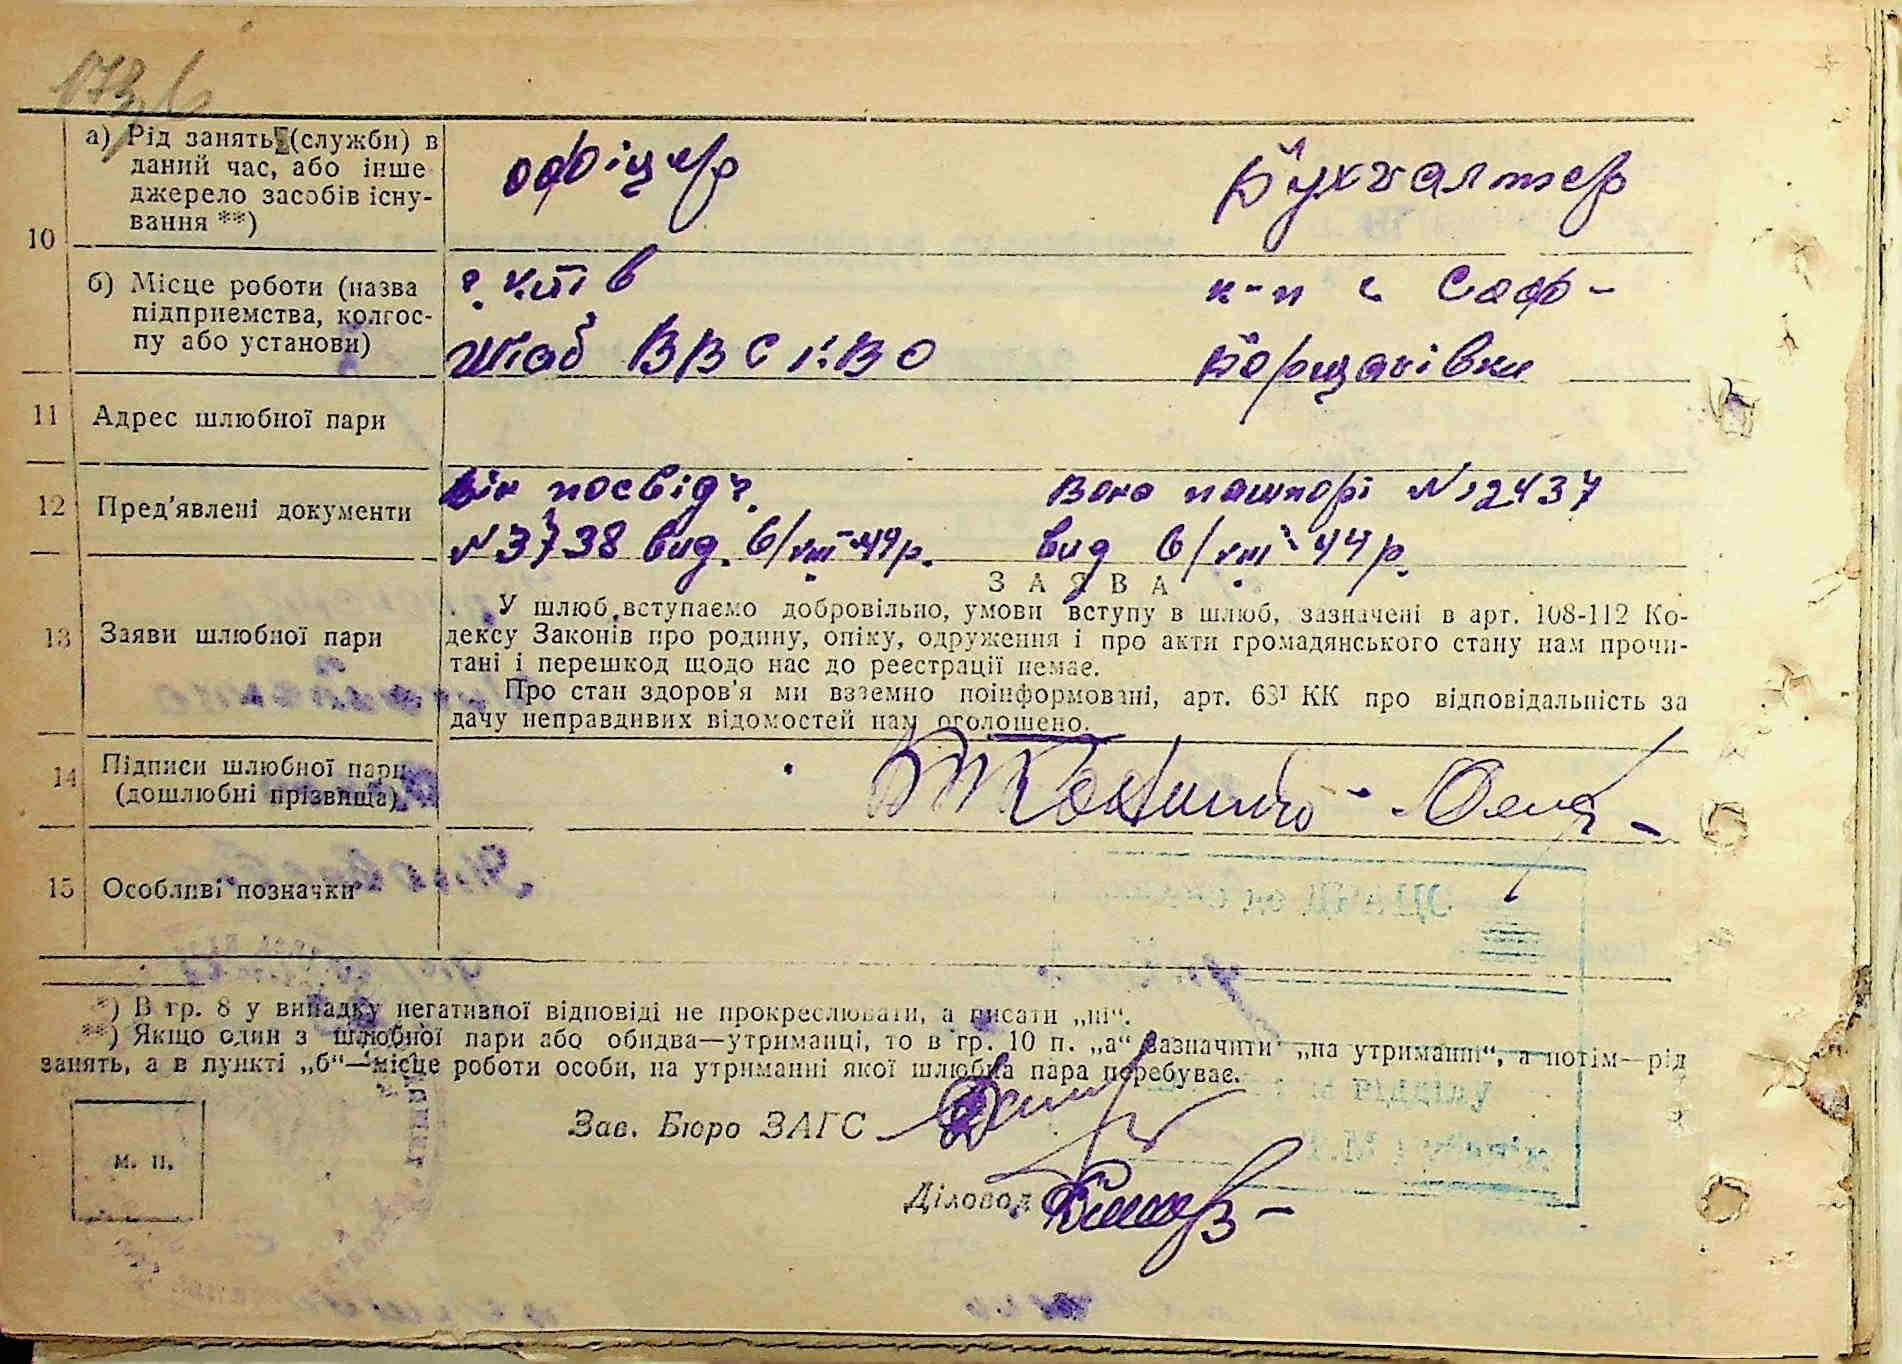 10
а) Рід занять (служби) в
даний час, або інше
джерело засобів існу-
вання **)
офіцер
Бухгалтер
б) Місце роботи (назва
підприємства, колгос-
пу або установи)
г. Київ
Штаб ВВС КВО
к-п с Соф-
Борщагівки
11 Адрес шлюбної пари
12 Пред'явлені документи
Він посвідч.
№3738 вид. 6/VIII-44р.
Вона пашпорт №2437
вид 6/VIII-44р.
13 Заяви шлюбної пари
ЗАЯВА
У шлюб вступаємо добровільно, умови вступу в шлюб, зазначені в арт. 108-112 Ко-
дексу Законів про родину, опіку, одруження і про акти громадянського стану нам прочи-
тані і перешкод щодо нас до реєстрації немає.
Про стан здоров'я ми взаємно поінформовані, арт. 63¹ КК про відповідальність за
дачу неправдивих відомостей нам оголошено.
14 Підписи шлюбної пари
(дошлюбні прізвища)
15 Особливі позначки
*) В гр. 8 у випадку негативної відповіді не прокреслювати, а писати „ні“.
**) Якщо один з шлюбної пари або обидва—утриманці, то в гр. 10 п. „а“ зазначити „на утриманні“, а потім—рід
занять, а в пункті „б“—місце роботи особи, на утриманні якої шлюбна пара перебуває.
Зав. Бюро ЗАГС
м. п.
Діловод